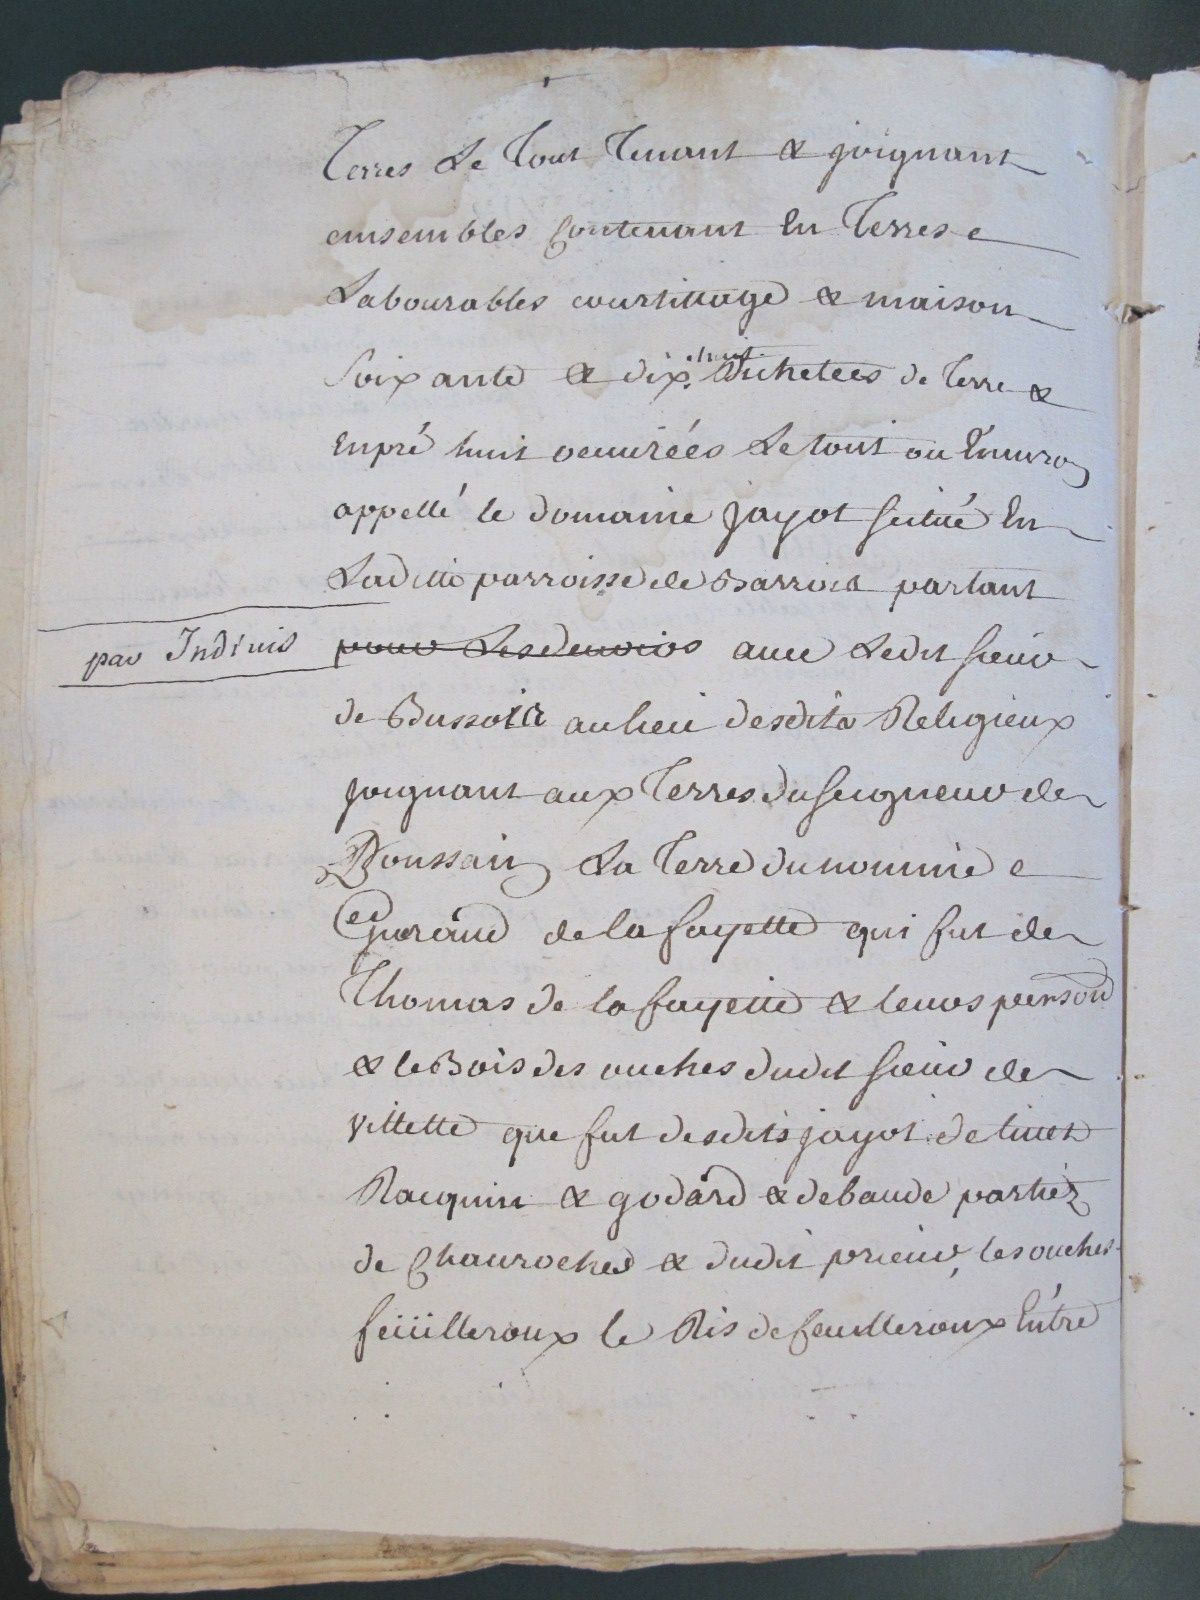 Terres Le Tout Tenant & joignant
ensembles Contenant En Terres
Labourables courtillage & maison
Soixante & dix huit Bichetees de Terre &
En pré huit oeuvrées Le tout ou Environ
appellé le domaine jayot scitué En
Laditte parroisse de Barrois partant
par Indivis
pour Les devoirs avec Ledit sieur
de Bussolle au lieu desdits Religieux
joignant aux Terres du seigneur de
Boussain La Terre du nommé
Gueraud de la fayette qui fut de
Thomas de la fayette & leurs person
& le Bois des ouches dudit sieur de
villette que fut desdits jayot de
Racquin & godard & debaude partiez
de Chauroches & dudit prieur, les ouches
feüilleroux le Ris de feuilleroux Entre